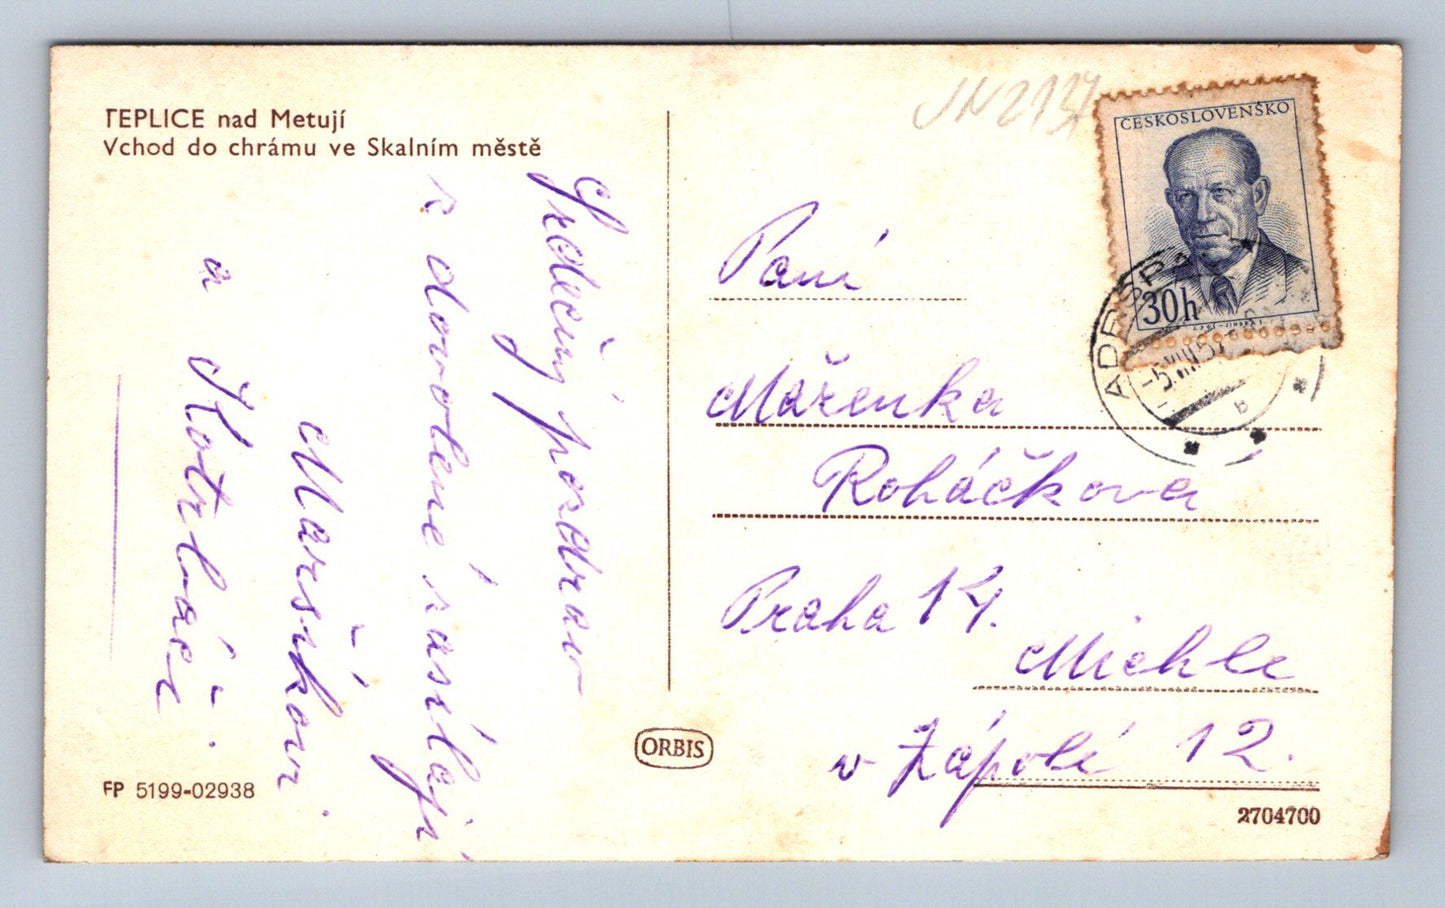 TEPLICE nad Metují
Vchod do chrámu ve Skalním městě
Srdečný pozdrav
z dovolené zasílají
Marsíkovi.
a Kotrláči.
FP 5199-02938
ORBIS
JN2137
ČESKOSLOVENSKO
30h
ADRŠPA
-5.VIII.5
b
Paní
Mařenka
Roháčkova
Praha 14.
Michle
v Zápolí 12.
2704700